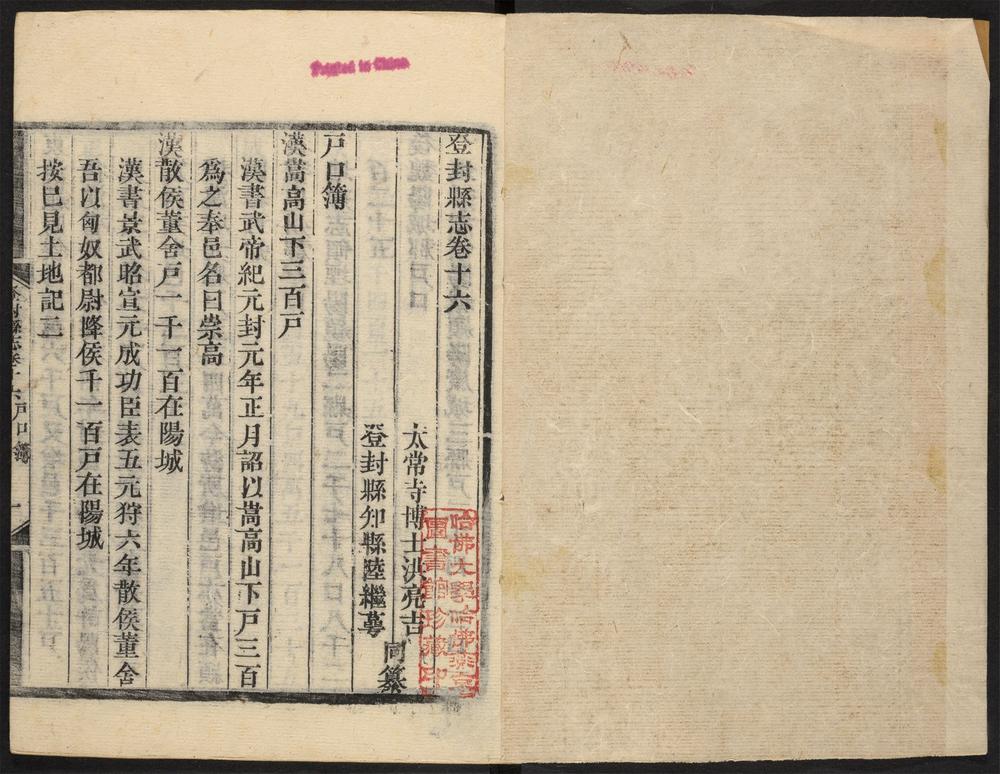 Printed in China
登封縣志卷十六
太常寺博士洪亮吉
登封縣知縣陸繼蕚
同纂
戸口簿
漢嵩高山下三百戸
漢書武帝紀元封元年正月詔以嵩高山下戸三百
爲之奉邑名曰崇高
漢散侯董舍戸一千一百在陽城
漢書景武昭宣元成功臣表五元狩六年散侯董舍
吾以匈奴都尉降侯千一百戸在陽城
按已見土地記二
登封縣志卷十六戸口簿
一
哈佛大學哈佛燕京
圖書館珍藏印